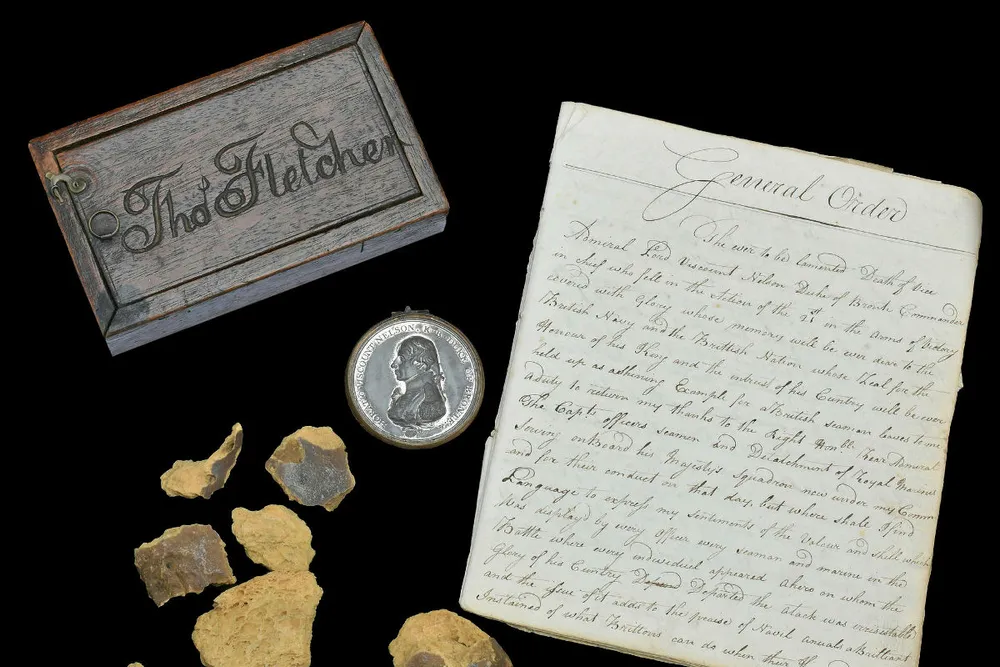 Tho.s Fletcher
HORATIO VISCOUNT NELSON. K.B. DUKE OF BRONTE.
General Order
The ever to be lamented Death of Vice
Admiral Lord Viscount Nelson Duke of Bronte Commander
in chief who fell in the Action of the 21st in the Arms of Victory
covered with Glory whose memory will be ever dear to the
British Navy and the Brittish Nation whose Zeal for the
Honour of his King and the intrust of his Cuntry will be ever
held up as a shining Example for a British seaman leaves to me
a duty to return my thanks to the Right Honbl. Rear Admiral
The Capts officers seamen and Ditatchment of Royal Marines
serving on Board his Majestys Squadron now under my Comm
and for their conduct on that day, but where shale I find
Language to express my sentiments of the Valour and skill which
Was displayd by every officer every seaman and marine in the
Battle where every individiuel appeared a hero on whom the
Glory of his Cuntry Departed the atack was irrisistable
and the issue of it adds to the praise of Navil anuals a Brilliant
Instained of what Brittons can do when their